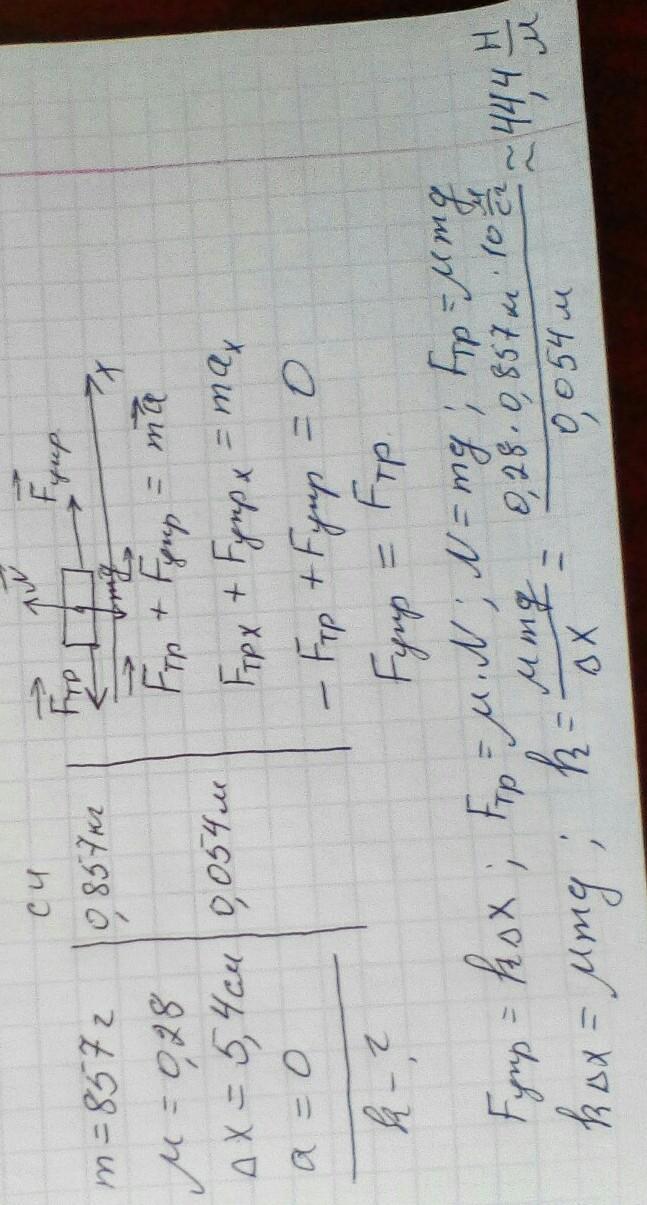 СИ
m = 857 г
0,857 кг
μ = 0,28
Δx = 5,4 см
0,054 м
a = 0
k - ?
Fтр N Fупр
mg X
Fтр + Fупр = ma
Fтрx + Fупрx = maₓ
- Fтр + Fупр = 0
Fупр = Fтр
Fупр = kΔx ; Fтр = μ·N ; N = mg ; Fтр = μmg
kΔx = μmg ; k = μmg/Δx = 0,28 · 0,857 кг · 10 м/с²/0,054 м ≈ 44,4 Н/м